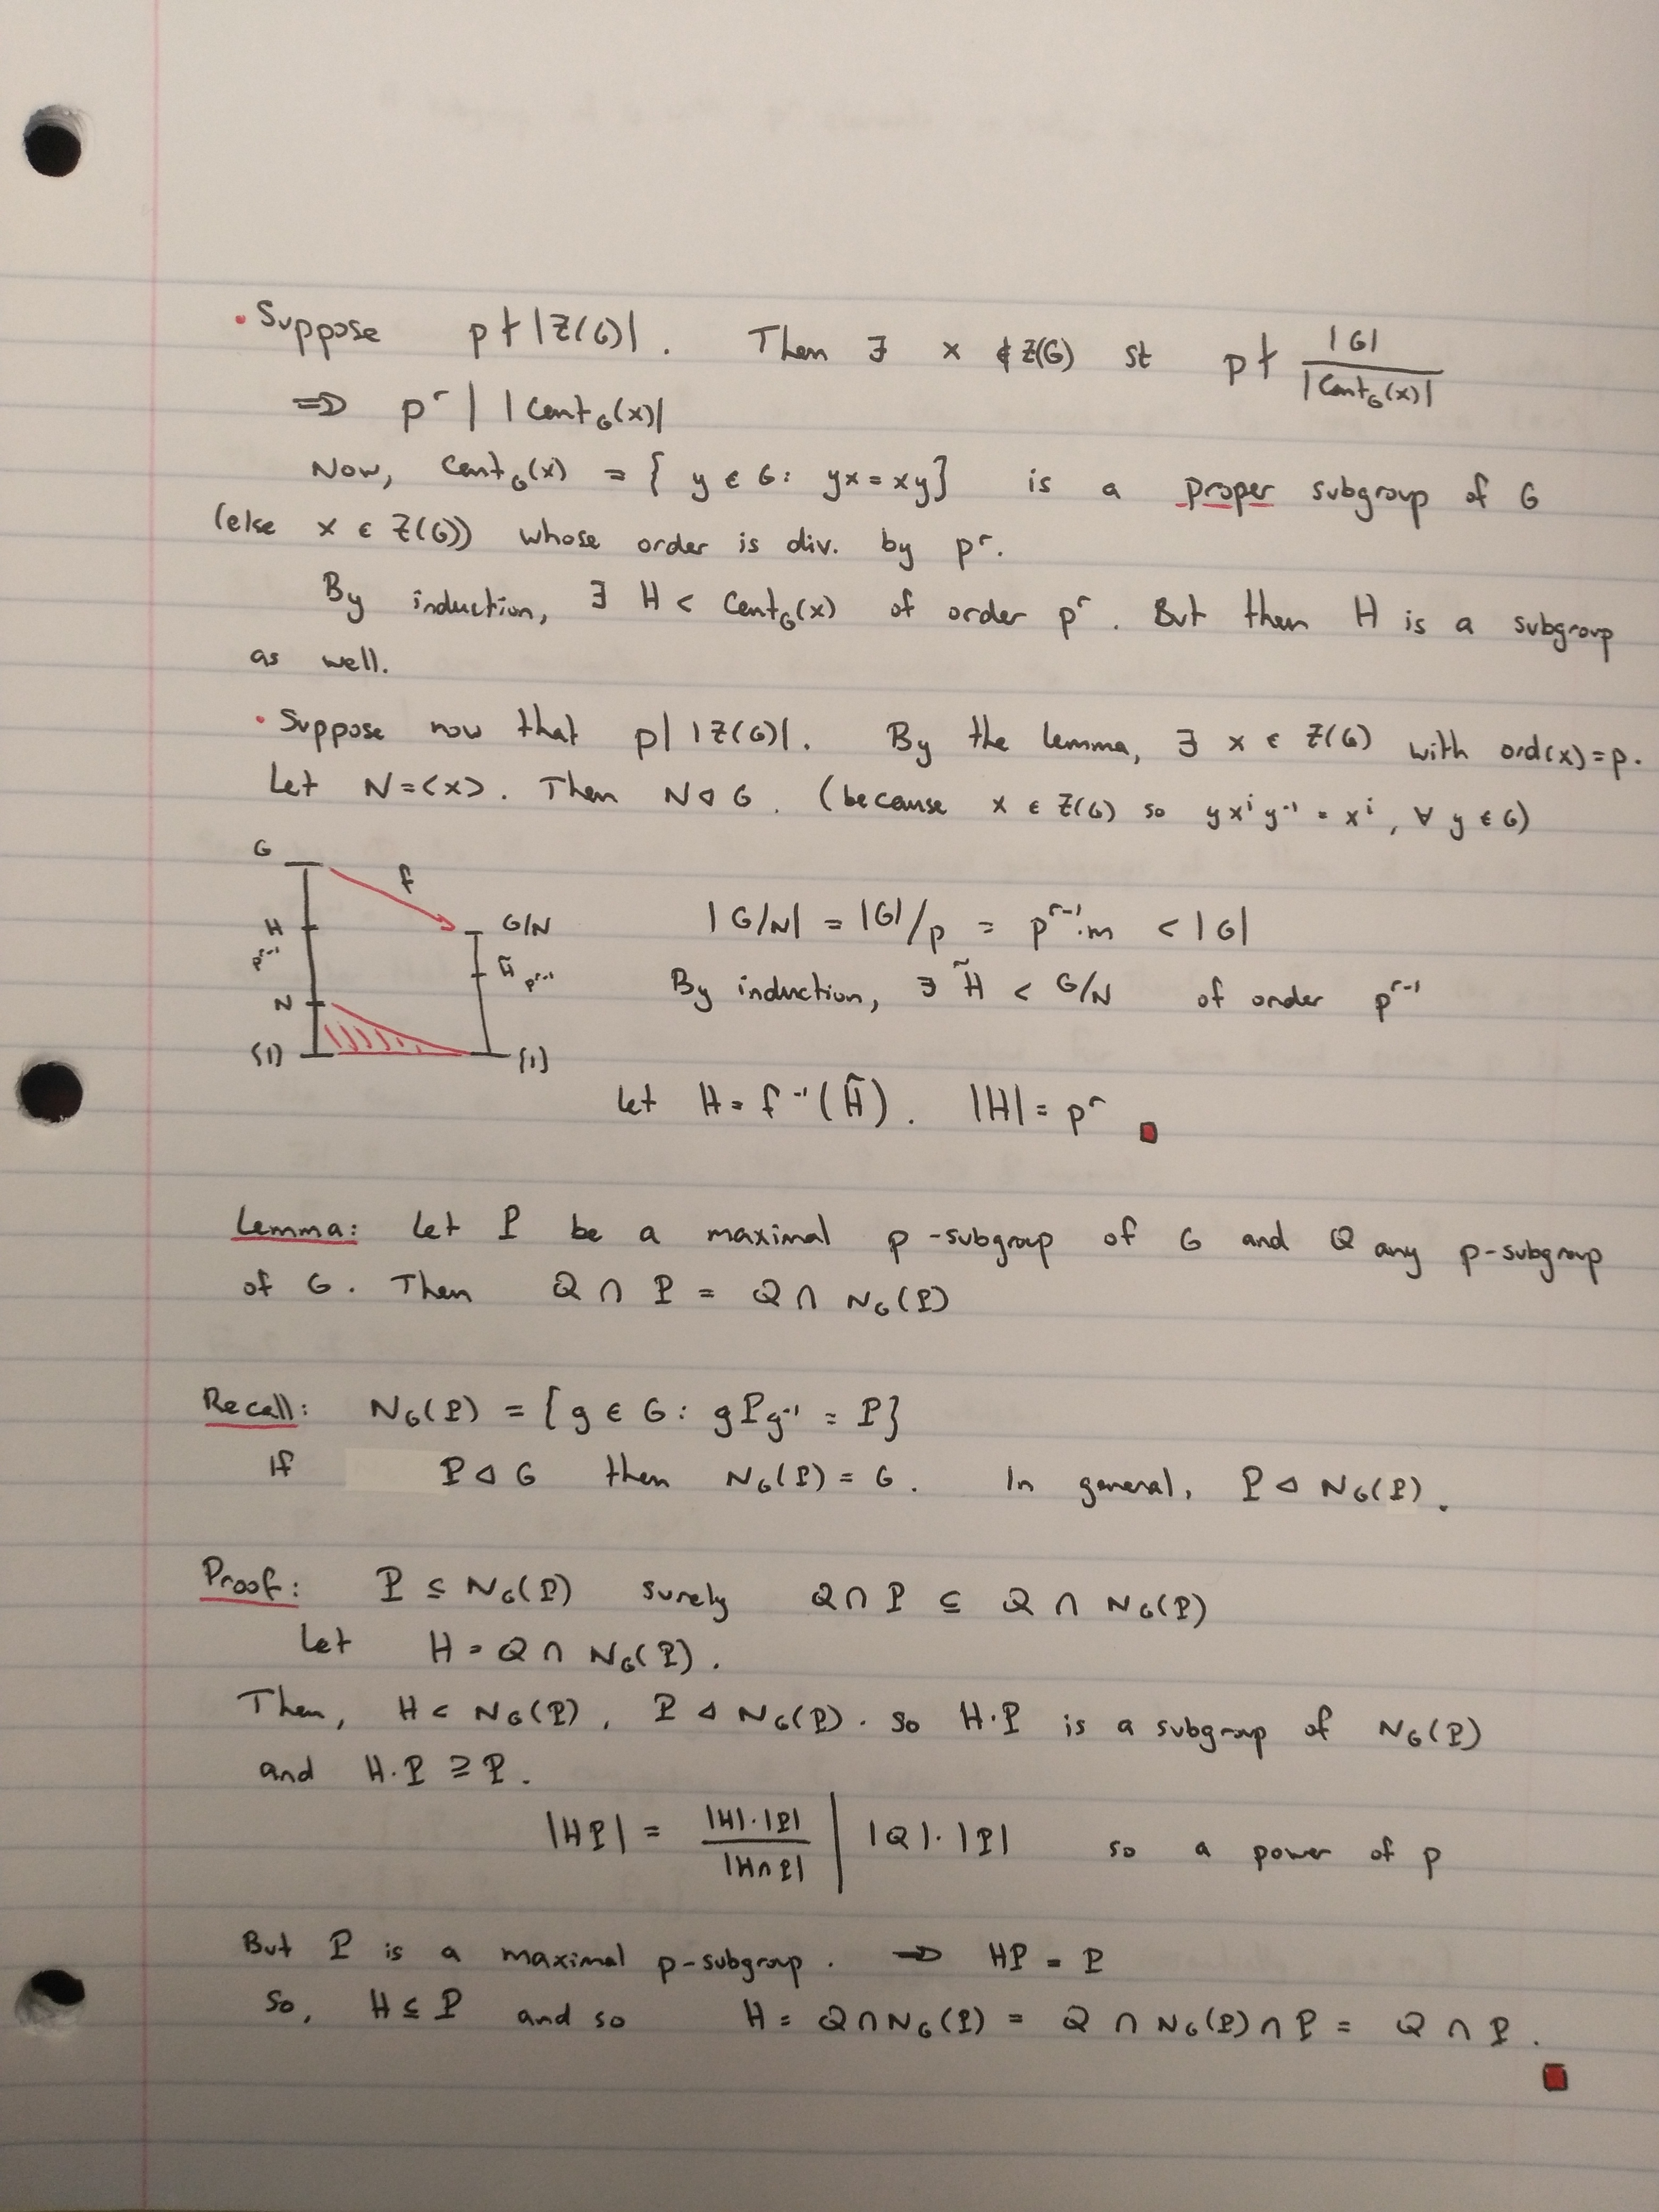 • Suppose p ∤ |Z(G)|. Then ∃ x ∉ Z(G) st p ∤ |G| / |Cent_G(x)|
⇒ p^r | |Cent_G(x)|
Now, Cent_G(x) = { y ∈ G : yx = xy } is a proper subgroup of G
(else x ∈ Z(G)) whose order is div. by p^r.
By induction, ∃ H < Cent_G(x) of order p^r. But then H is a subgroup
as well.
• Suppose now that p | |Z(G)|. By the lemma, ∃ x ∈ Z(G) with ord(x) = p.
Let N = <x>. Then N ◁ G. (because x ∈ Z(G) so y x^i y^-1 = x^i, ∀ y ∈ G)
G
f
H
G/N
p^r-1
H̃ p^r-1
N
{1}
{1}
|G/N| = |G|/p = p^r-1·m < |G|
By induction, ∃ H̃ < G/N of order p^r-1
Let H = f^-1(H̃). |H| = p^r
Lemma: Let P be a maximal p-subgroup of G and Q any p-subgroup
of G. Then Q ∩ P = Q ∩ N_G(P)
Recall: N_G(P) = { g ∈ G : gPg^-1 = P }
If P ◁ G then N_G(P) = G. In general, P ◁ N_G(P).
Proof: P ⊆ N_G(P) surely Q ∩ P ⊆ Q ∩ N_G(P)
Let H = Q ∩ N_G(P).
Then, H < N_G(P), P ◁ N_G(P). So H·P is a subgroup of N_G(P)
and H·P ⊇ P.
|HP| = |H|·|P| / |H∩P| | |Q|·|P| so a power of p
But P is a maximal p-subgroup. ⇒ HP = P
So, H ⊆ P and so H = Q ∩ N_G(P) = Q ∩ N_G(P) ∩ P = Q ∩ P.